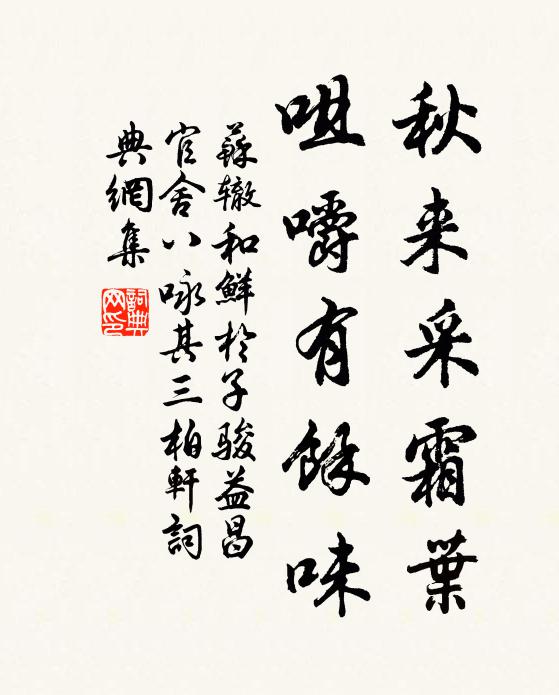 秋来采霜葉
咀嚼有餘味
蘇辙和鮮於子骏益昌
官舍八咏其三柏軒詞
典網集
詞典网印